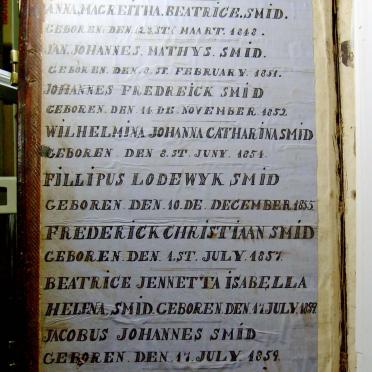 ANNA, MAGREITHA. BEATRICE. SMID.
GEBOREN DEN 28.STE MAART. 1848.
JAN. JOHANNES, MATHYS. SMID.
GEBOREN DEN 8.ST. FEBRUARY. 1851.
JOHANNES FREDREICK SMID
GEBOREN DEN 14 DE. NOVEMBER. 1852.
WILHELMINA JOHANNA CATHARINA SMID
GEBOREN DEN 8.ST. JUNY. 1854.
FILLIPUS LODEWYK SMID
GEBOREN DEN 10.DE. DECEMBER. 1855
FREDERICK CHRISTIAAN SMID
GEBOREN DEN 1.ST. JULY. 1857.
BEATRICE JENNETTA ISABELLA
HELENA, SMID. GEBOREN DEN 17 JULY. 1859.
JACOBUS JOHANNES SMID
GEBOREN. DEN. 17. JULY. 1859.